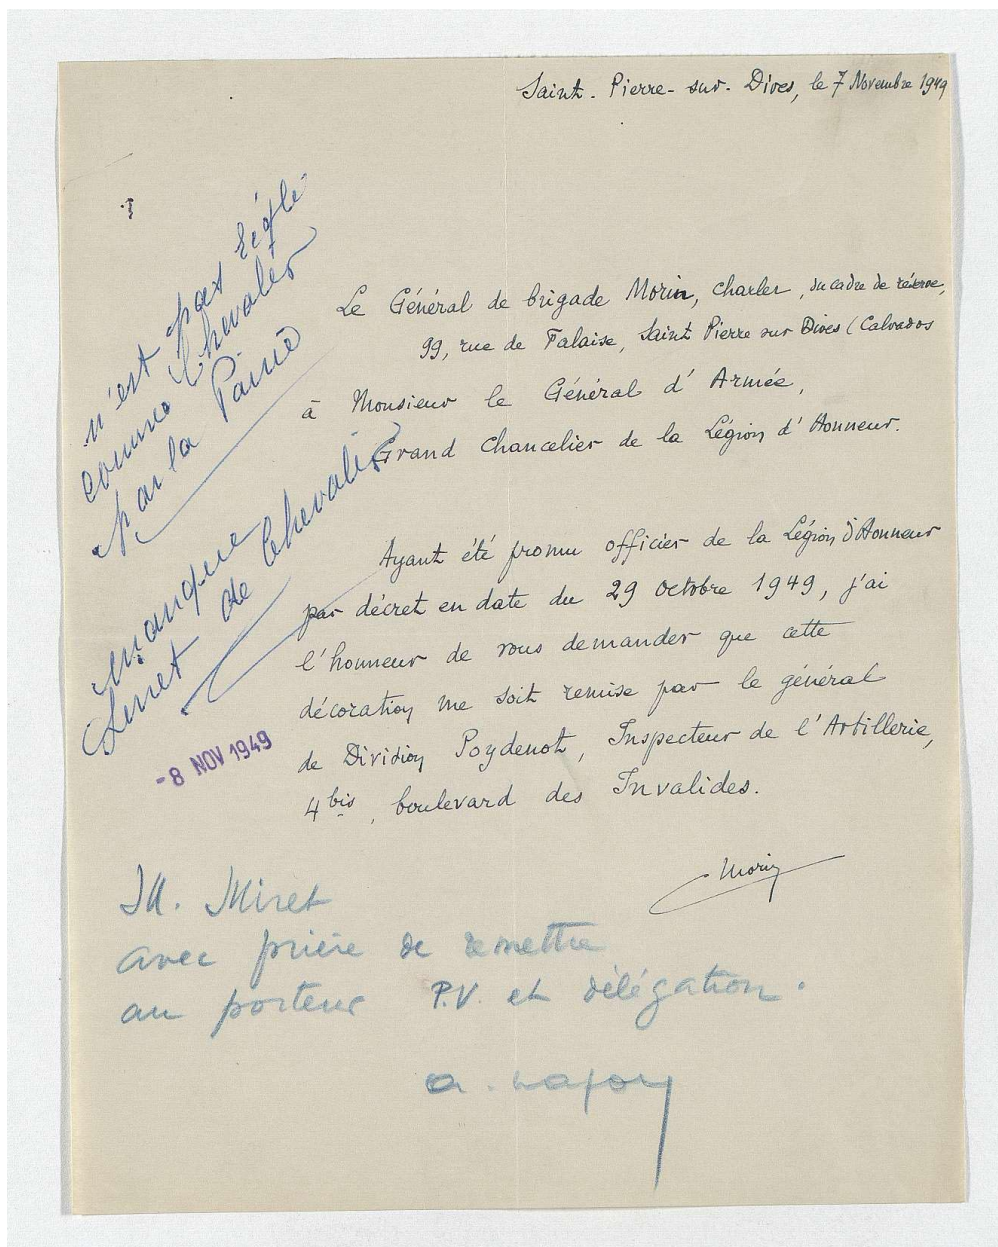 Saint-Pierre-sur-Dives, le 7 Novembre 1949
n'est pas réglé
comme Chevalier
par la Paierie
Le Général de brigade Morin, Charles, du cadre de réserve,
99, rue de Falaise, Saint Pierre sur Dives (Calvados
à Monsieur le Général d'Armée,
Grand Chancelier de la Légion d'Honneur.
manque
Livret de Chevalier
Ayant été promu officier de la Légion d'Honneur
par décret en date du 29 octobre 1949, j'ai
l'honneur de vous demander que cette
décoration me soit remise par le général
de Division Poydenot, Inspecteur de l'Artillerie,
4 bis, boulevard des Invalides.
-8 NOV 1949
Morin
M. Miret
avec prière de remettre
au porteur P.V. et délégation.